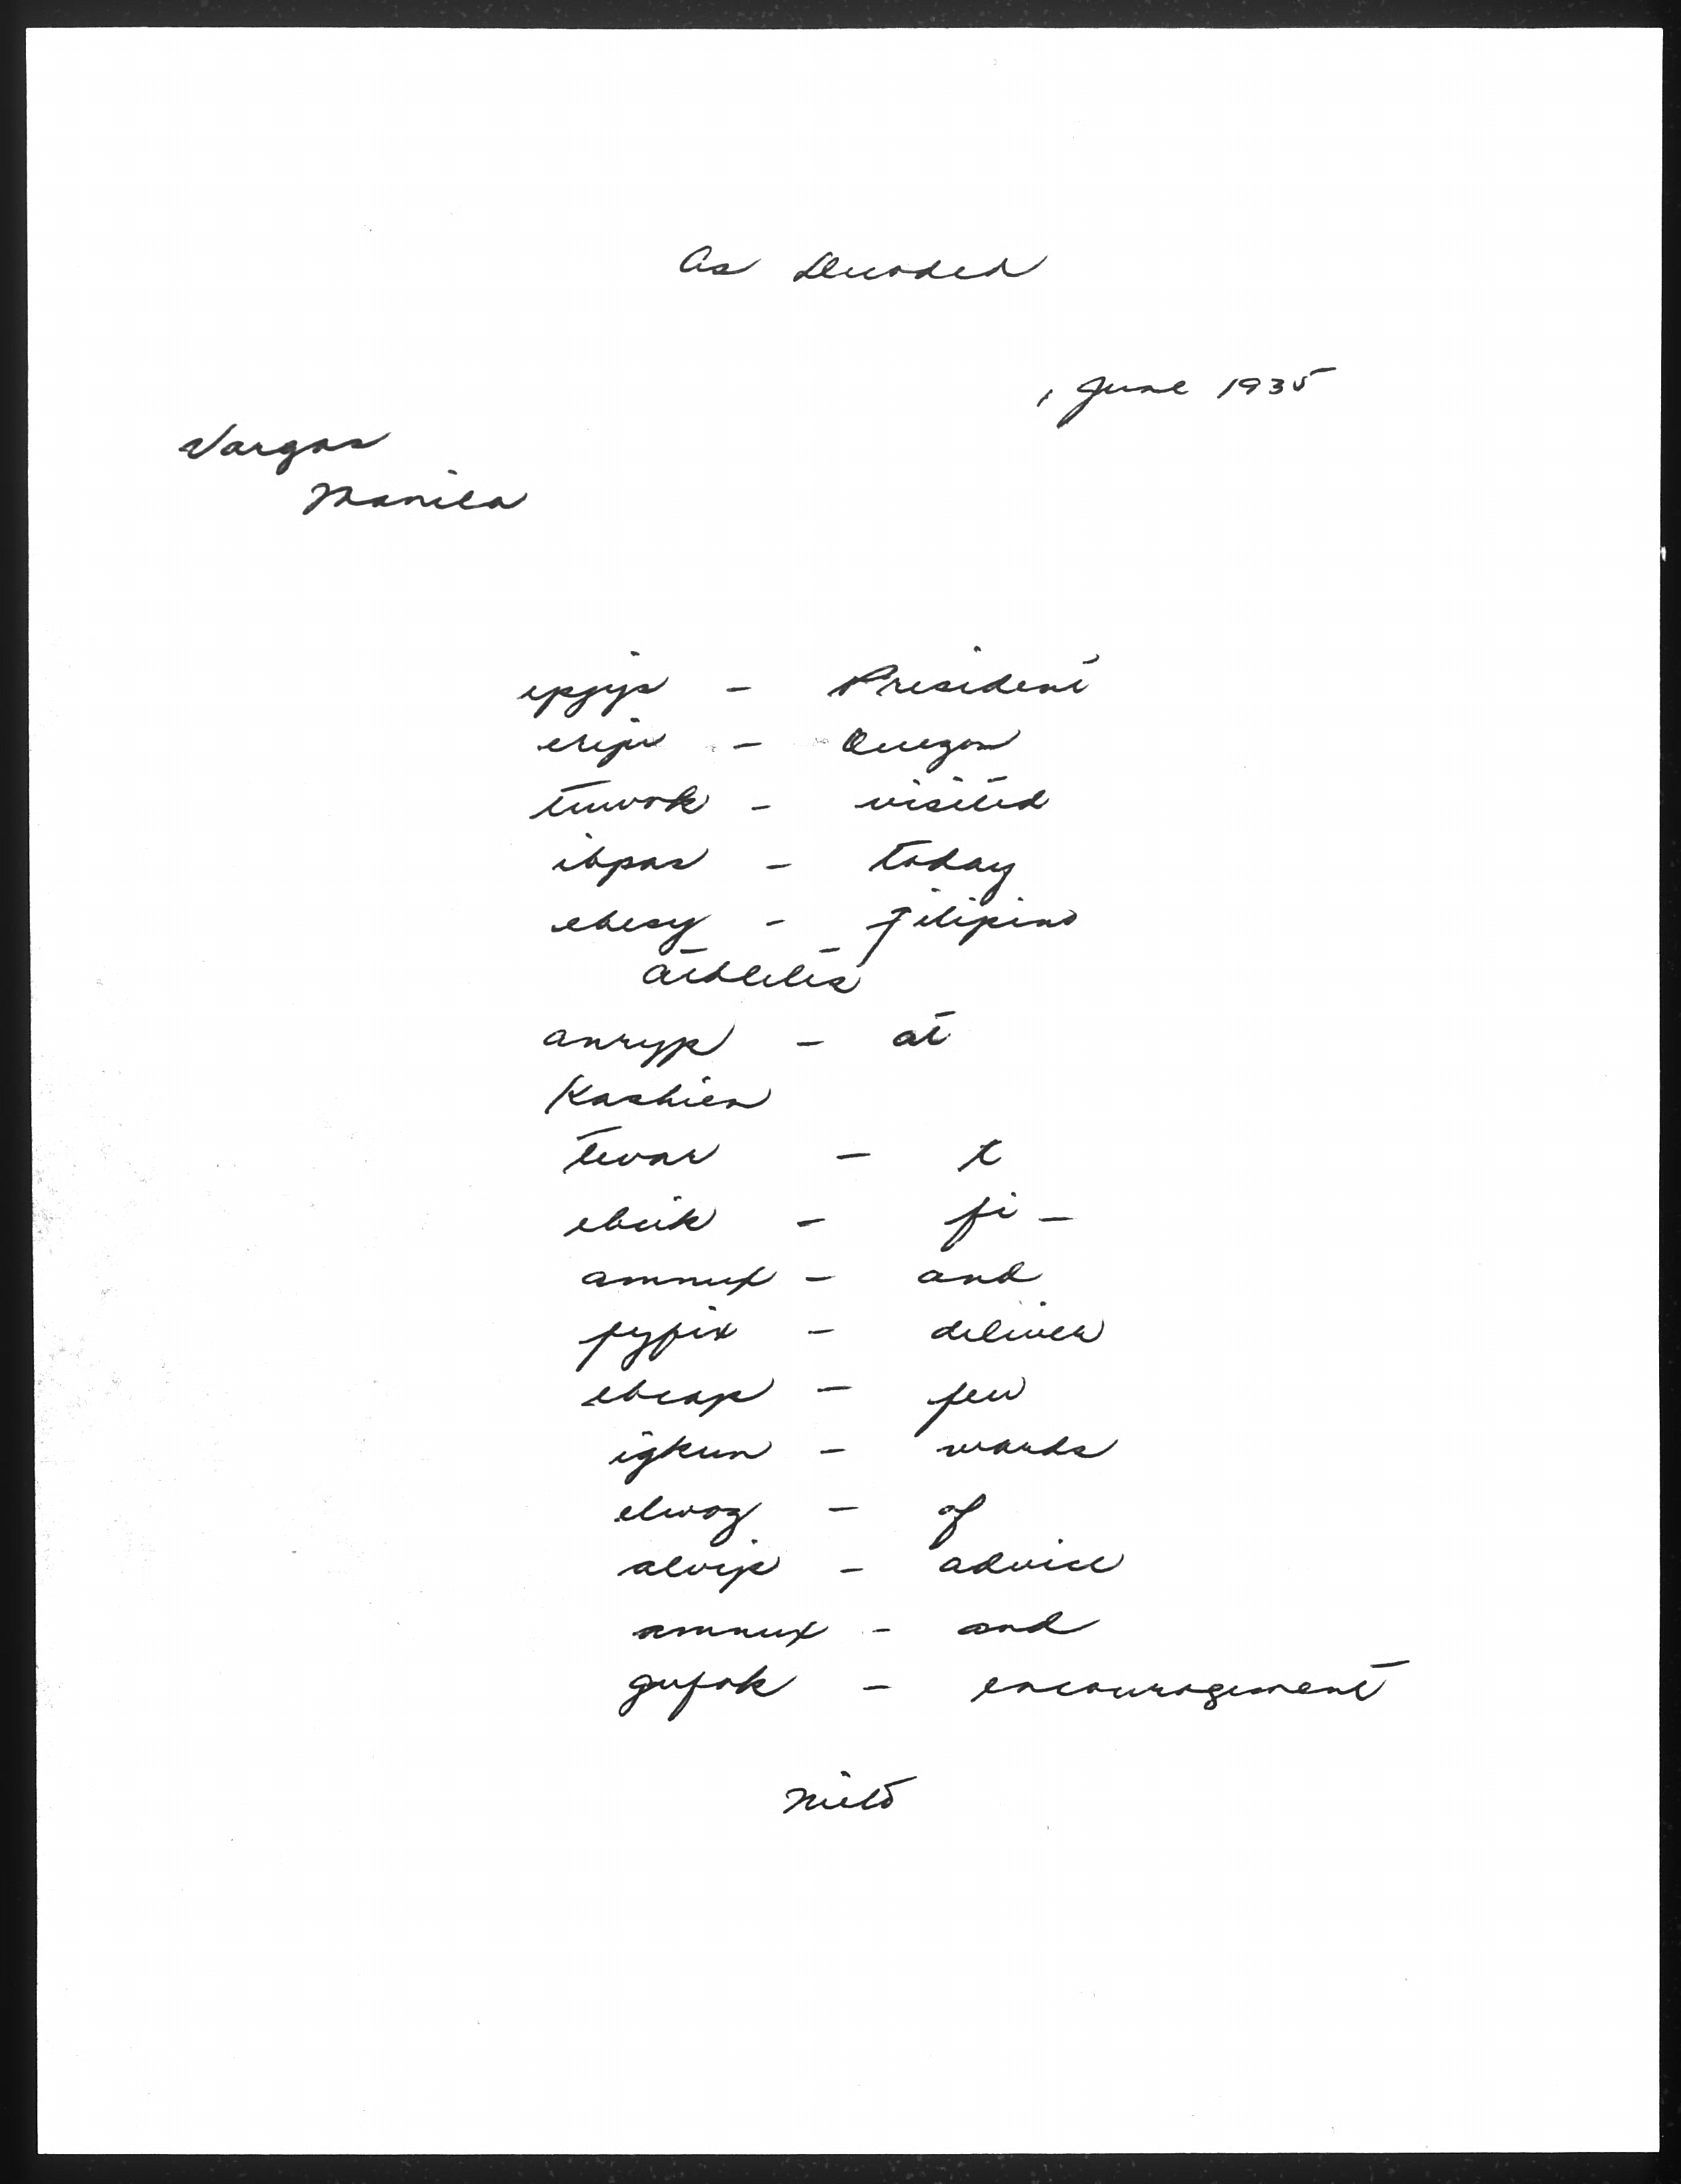 As Decoded
1 June 1935
Vargas
Manila
- President
- Quezon
tuwok - visited
ibpas - today
ebesy - Filipino
athletes
anryp - at
Kashien
tevar - t
ebeik - fi -
amnux - and
fyfix - deliver
ebcap - few
igkun - words
elwog - of
alvip - advice
amnux - and
gufok - encouragement
Nieto